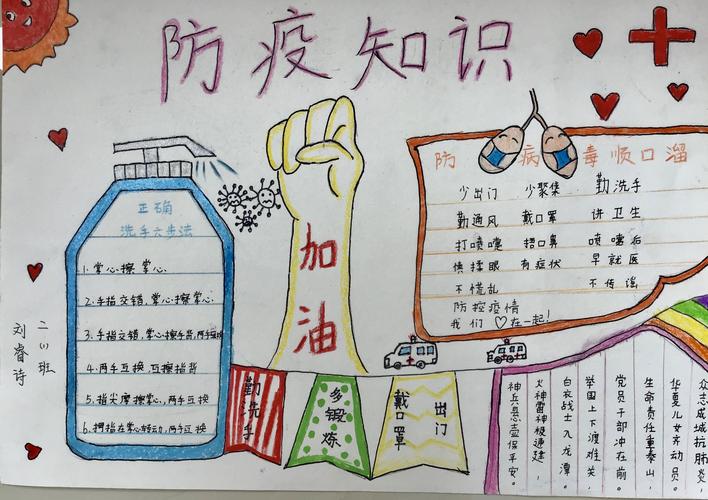 防疫知识
正确
洗手六步法
1.掌心擦掌心
2.手指交错,掌心擦掌心.
3.手指交错,掌心擦手背,两手互换
4.两手互换,互擦指背
5.指尖摩擦掌心,两手互换
6.拇指在掌心转动,两手互换
加油
防 病毒顺口溜
少出门 少聚集 勤洗手
勤通风 戴口罩 讲卫生
打喷嚏 捂口鼻 喷嚏后
慎揉眼 有症状 早就医
不慌乱 不传谣
防控疫情
我们在一起!
勤洗手
多锻炼
戴口罩 出门
众志成城抗肺炎,
华夏儿女齐动员。
生命责任重泰山,
党员干部冲在前。
举国上下渡难关,
白衣战士入龙潭。
火神雷神极速建,
神兵悬壶保平安。
二(1)班
刘睿诗